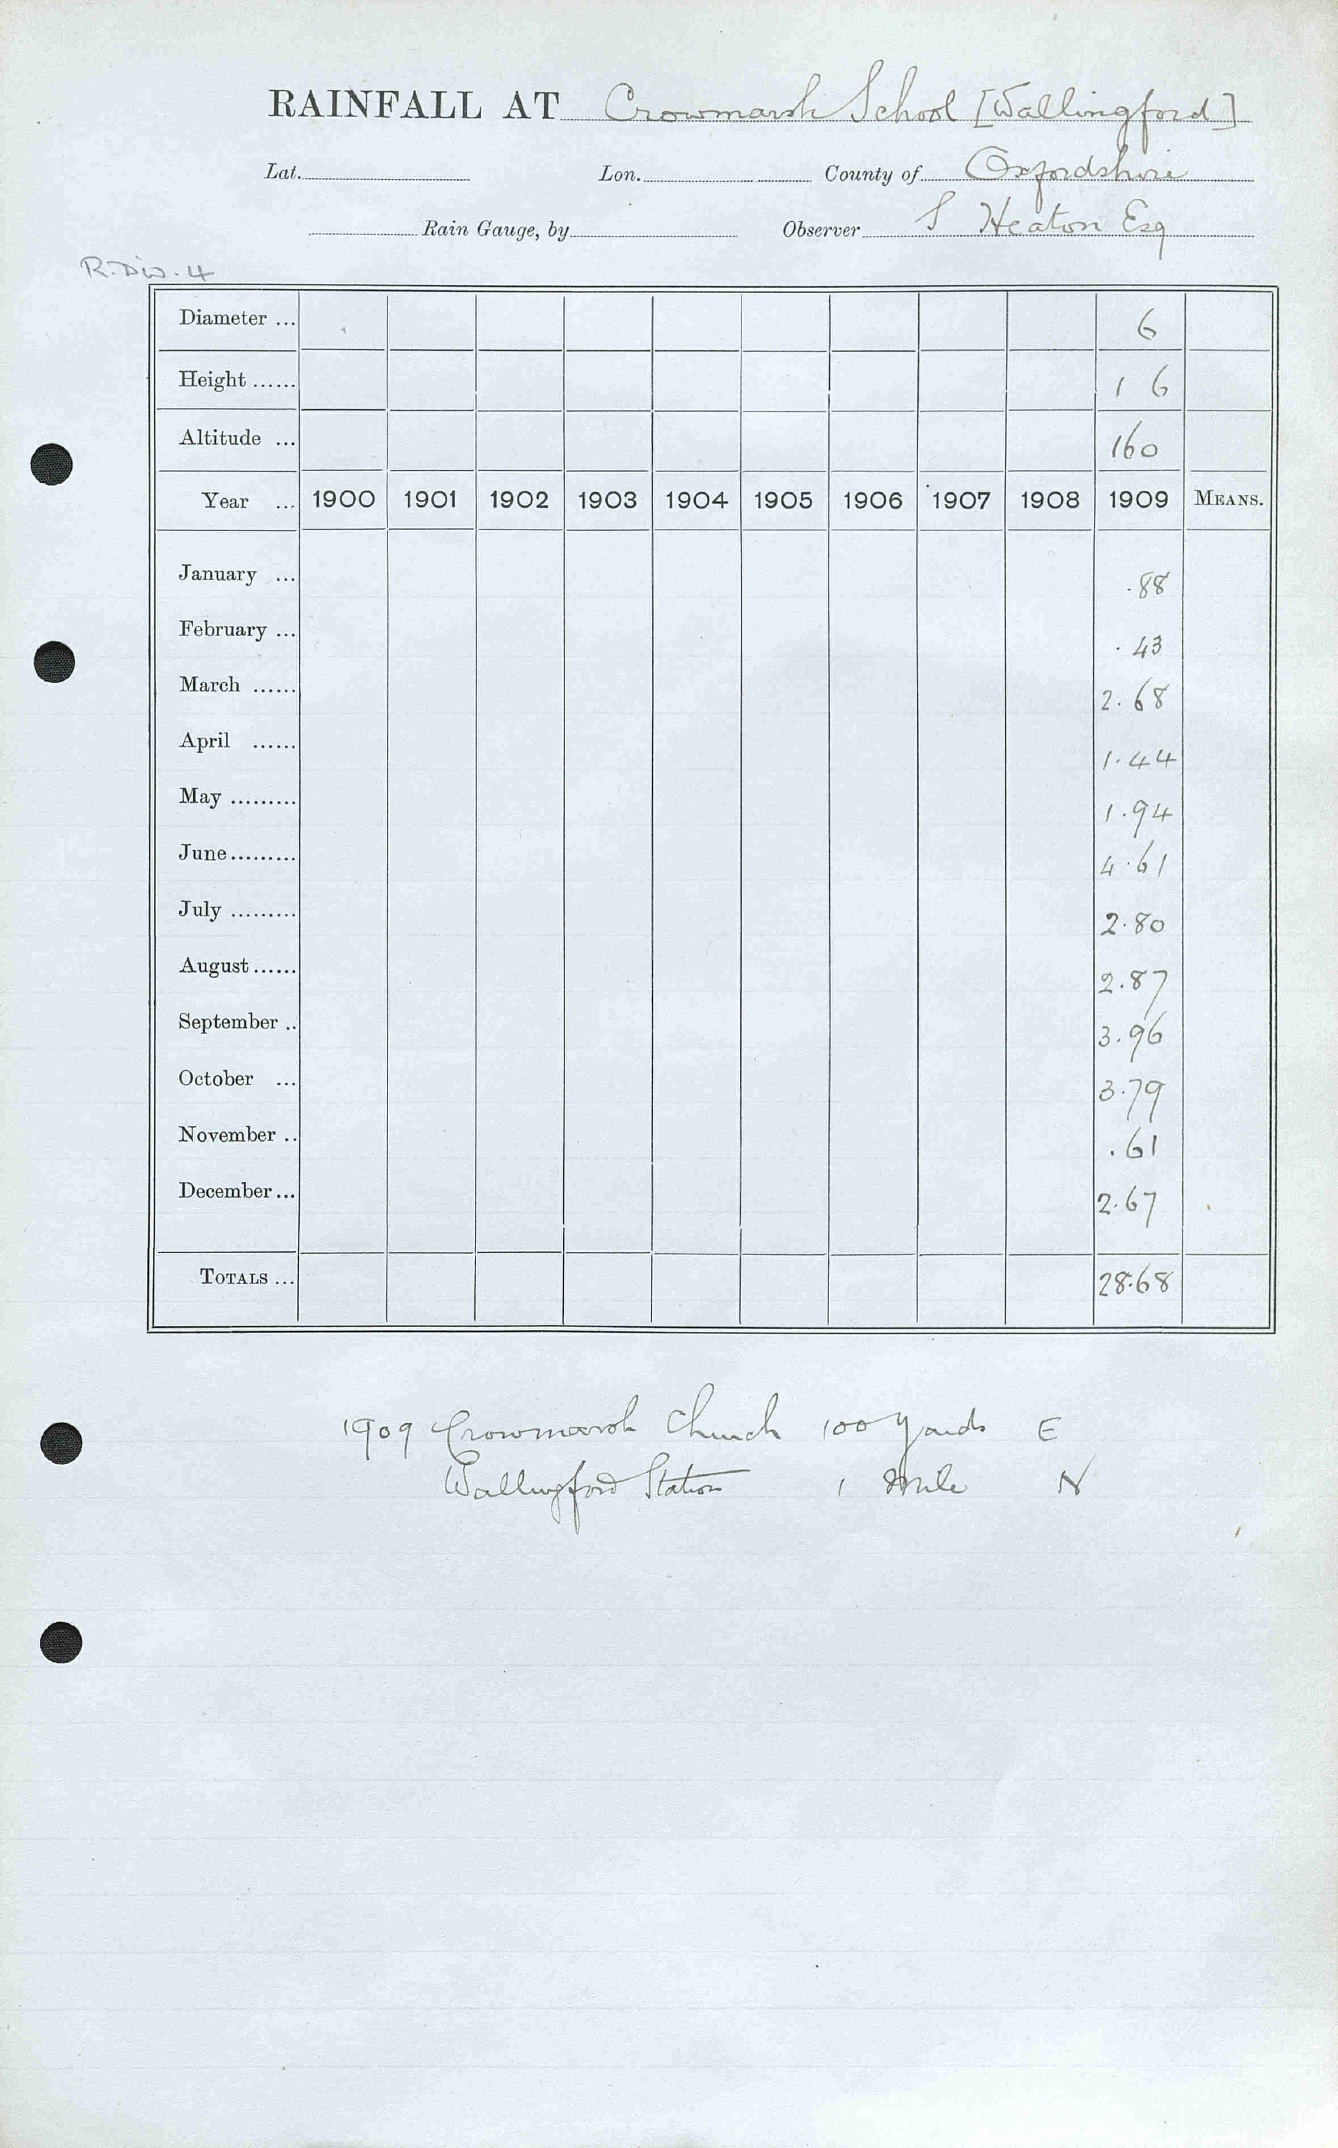 RAINFALL AT Crowmarsh School [Wallingford]
Lat. Lon. County of Oxfordshire
Rain Gauge, by Observer S Heaton Esq
R. Div. 4
Diameter ... 6
Height ...... 1 6
Altitude ... 160
Year ... 1900 1901 1902 1903 1904 1905 1906 1907 1908 1909 MEANS.
January ... .88
February ... .43
March ...... 2.68
April ...... 1.44
May ......... 1.94
June ......... 4.61
July ......... 2.80
August ...... 2.87
September .. 3.96
October ... 3.79
November .. .61
December ... 2.67
TOTALS ... 28.68
1909 Crowmarsh Church 100 Yards E
Wallingford Station 1 Mile N